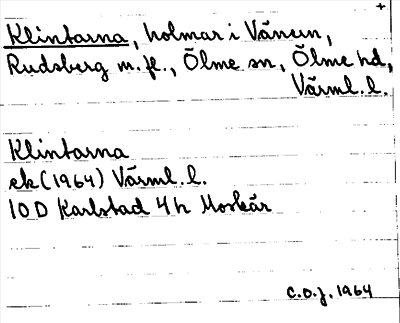 +
Klintarna, holmar i Vänern,
Rudsberg m.fl., Ölme sn, Ölme hd,
Värml.l.
Klintarna
ek (1964) Värml.l.
10 D Karlstad 4h Morkär
C.O.J. 1964